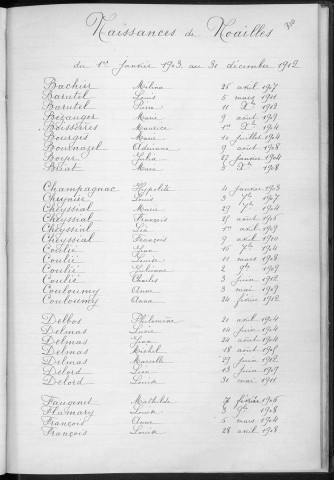 Naissances de Noailles
du 1er Janvier 1903 au 31 décembre 1912
Bachier Mélina 25 avril 1907
Barutel Louis 5 mars 1901
Barutel 11 Xbre 1912
Bezanger Marie 9 août 1909
Boissières Maurice 1er 1904
Bourges Marie 10 juillet 1904
Bournazel Adrienne 9 août 1908
Boyer Julia 27 janvier 1904
Brat 3 Xbre 1908
Champagnac Hypolite 4 janvier 1903
Chaynier Louis 3 1907
Cheyssial Marie 29 1904
Cheyssial François 25 août 1906
Cheyssial Léa 1er avril 1909
Cheyssial François 9 avril 1910
Coulié 16 7bre 1904
Coulié Louise 11 mars 1908
Coulié 2 9bre 1909
Coulié Charles 3 juin 1912
Couloumy Anna 3 mai 1909
Couloumy Anna 24 février 1912
Delbos Philomène 21 avril 1904
Delmas 14 juin 1904
Delmas 24 août 1904
Delmas Michel 18 août 1905
Delmas Marcelle 29 juin 1912
Delord Léa 13 juin 1909
Delord Louise 31 mai 1911
Faugenet Mathilde 7 février 1906
Flamary Louise 8 9bre 1908
François Anna 5 mars 1904
François Louise 28 avril 1908